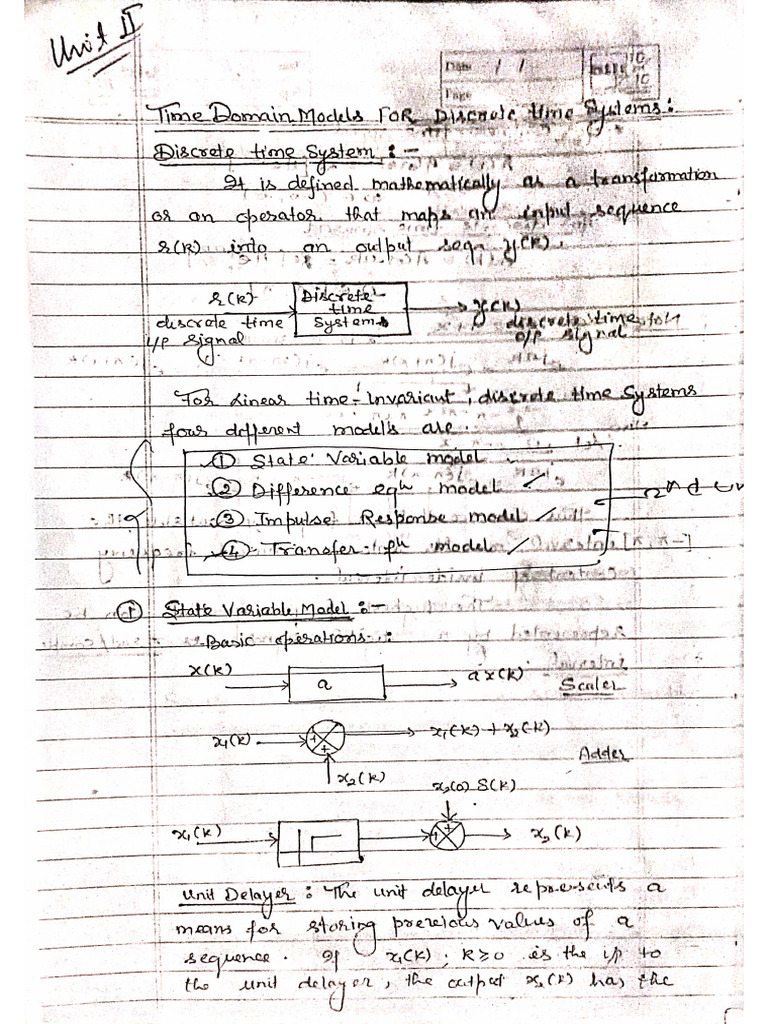 Unit II
Date / /
Page
Time Domain Models FOR Discrete time Systems:
Discrete time System :-
It is defined mathematically as a transformation
or an operator that maps an input sequence
r(k) into an output seqn y(k).
r(k)
Discrete
time
System
y(k)
discrete time
i/p signal
discrete time
o/p signal
For Linear time-Invariant, discrete time Systems
four different models are
① State Variable model
② Difference eqn model
③ Impulse Response model
④ Transfer fn model
① State Variable Model :-
Basic operations :
x(k)
a
ax(k)
Scaler
x1(k)
+
+
x1(k) + x2(k)
x2(k)
Adder
x2(0) S(k)
x1(k)
+
+
x2(k)
Unit Delayer : The unit delayer represents a
means for storing prereious values of a
sequence. If x1(k) ; k≥0 is the i/p to
the unit delayer, the output x2(k) has the